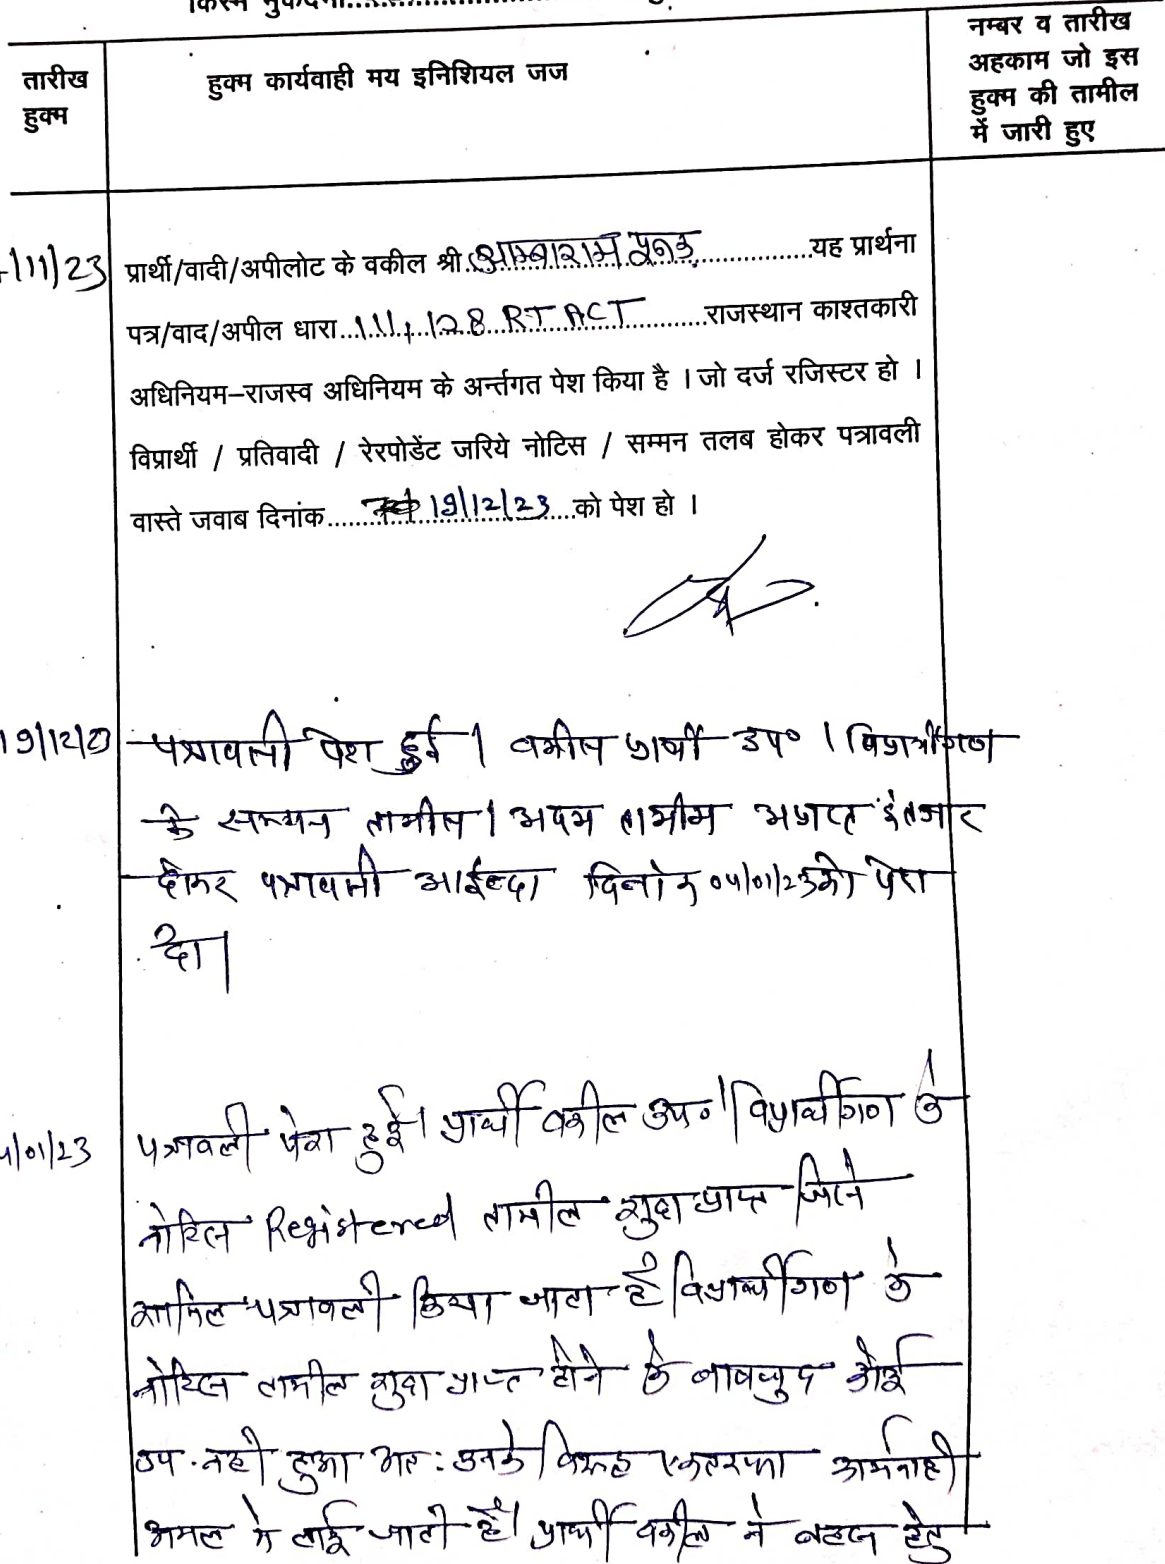 किस्म मुकदमा
तारीख हुक्म
हुक्म कार्यवाही मय इनिशियल जज
नम्बर व तारीख अहकाम जो इस हुक्म की तामील में जारी हुए
/11/23
प्रार्थी/वादी/अपीलोट के वकील श्री आम्बाराम यह प्रार्थना
पत्र/वाद/अपील धारा 111, 128 RT ACT राजस्थान काश्तकारी
अधिनियम–राजस्व अधिनियम के अर्न्तगत पेश किया है । जो दर्ज रजिस्टर हो ।
विप्रार्थी / प्रतिवादी / रेरपोडेंट जरिये नोटिस / सम्मन तलब होकर पत्रावली
वास्ते जवाब दिनांक 19/12/23 को पेश हो ।
19/12/23 पत्रावली पेश हुई । वकील प्रार्थी उप० । विप्रार्थीगण
के सम्मन तामील । अदम तामील इंतजार
होकर पत्रावली आईन्दा दिनांक 04/01/23 को पेश
हो ।
4/01/23 पत्रावली पेश हुई । प्रार्थी वकील उप० । विप्रार्थीगण के
नोटिस Registered तामील शुदा प्राप्त जिसे
शामिल पत्रावली किया जाता है । विप्रार्थीगण के
नोटिस तामील शुदा प्राप्त होने के बावजुद कोई
उप. नहीं हुआ अत: उनके विरूद्ध एकतरफा कार्यवाही
अमल में लाई जाती है । प्रार्थी वकील ने बहस हेतु